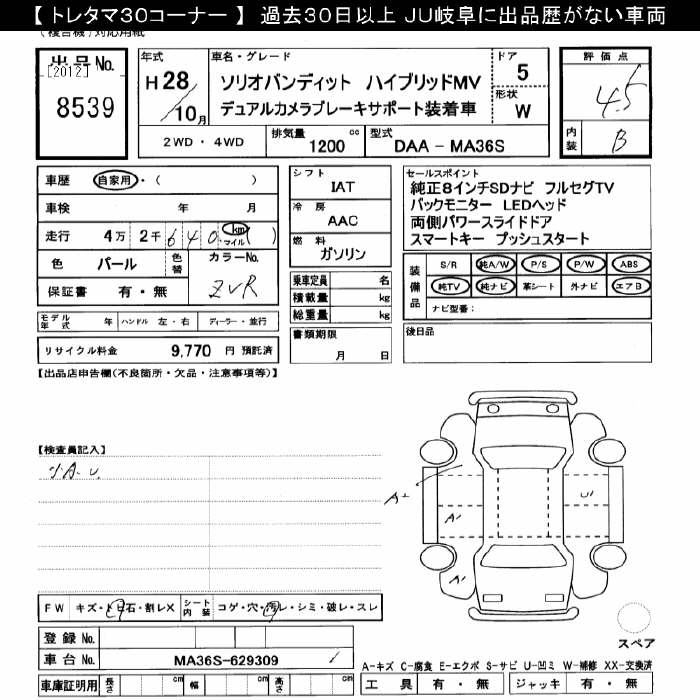 【 トレタマ30コーナー 】 過去30日以上 JU岐阜に出品歴がない車両
(複合機)対応用紙
出品No.
[2012]
8539
年式
H 28
10月
車名・グレード
ソリオバンディット ハイブリッドMV
デュアルカメラブレーキサポート装着車
ドア
5
形状
W
2WD ・ 4WD
排気量
1200 cc
型式
DAA - MA36S
評価点
4.5
内装
B
車歴 自家用・( )
車検 年 月
走行 4万 2千 6 4 0 km マイル ( )
色 パール 色替 カラーNo.
保証書 有・無 ZVR
モデル年式 年 ハンドル 左・右 ディーラー・並行
リサイクル料金 9,770 円 預託済
シフト
IAT
冷房
AAC
燃料
ガソリン
乗車定員 名
積載量 kg
総重量 kg
書類期限
月 日
セールスポイント
純正8インチSDナビ フルセグTV
バックモニター LEDヘッド
両側パワースライドドア
スマートキー プッシュスタート
装備品
S/R 純A/W P/S P/W ABS
純TV 純ナビ 革シート 外ナビ エアB
ナビ型番:
後日品
【出品店申告欄(不良箇所・欠品・注意事項等)】
【検査員記入】
A・U
A1
A1
A1
U1
FW キズ・トビ石・割レX シート内装 コゲ・穴・汚レ・シミ・破レ・スレ
登録No.
車台No. MA36S-629309
車庫証明用 長さ cm 幅 cm 高さ cm
スペア
A-キズ C-腐食 E-エクボ S-サビ U-凹ミ W-補修 XX-交換済
工具 有・無 ジャッキ 有・無